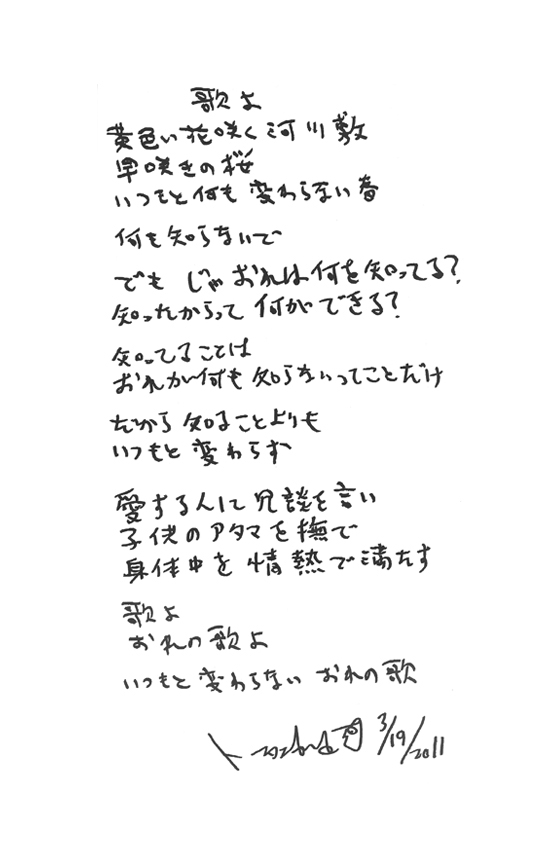 歌よ
黄色い花咲く河川敷
早咲きの桜
いつもと何も変わらない春
何も知らないで
でも じゃおれは何を知ってる?
知ったからって何ができる?
知ってることは
おれが何も知らないってことだけ
だから知ることよりも
いつもと変わらず
愛する人に冗談を言い
子供のアタマを撫で
身体中を情熱で満たす
歌よ
おれの歌よ
いつもと変わらない おれの歌
3/19/2011